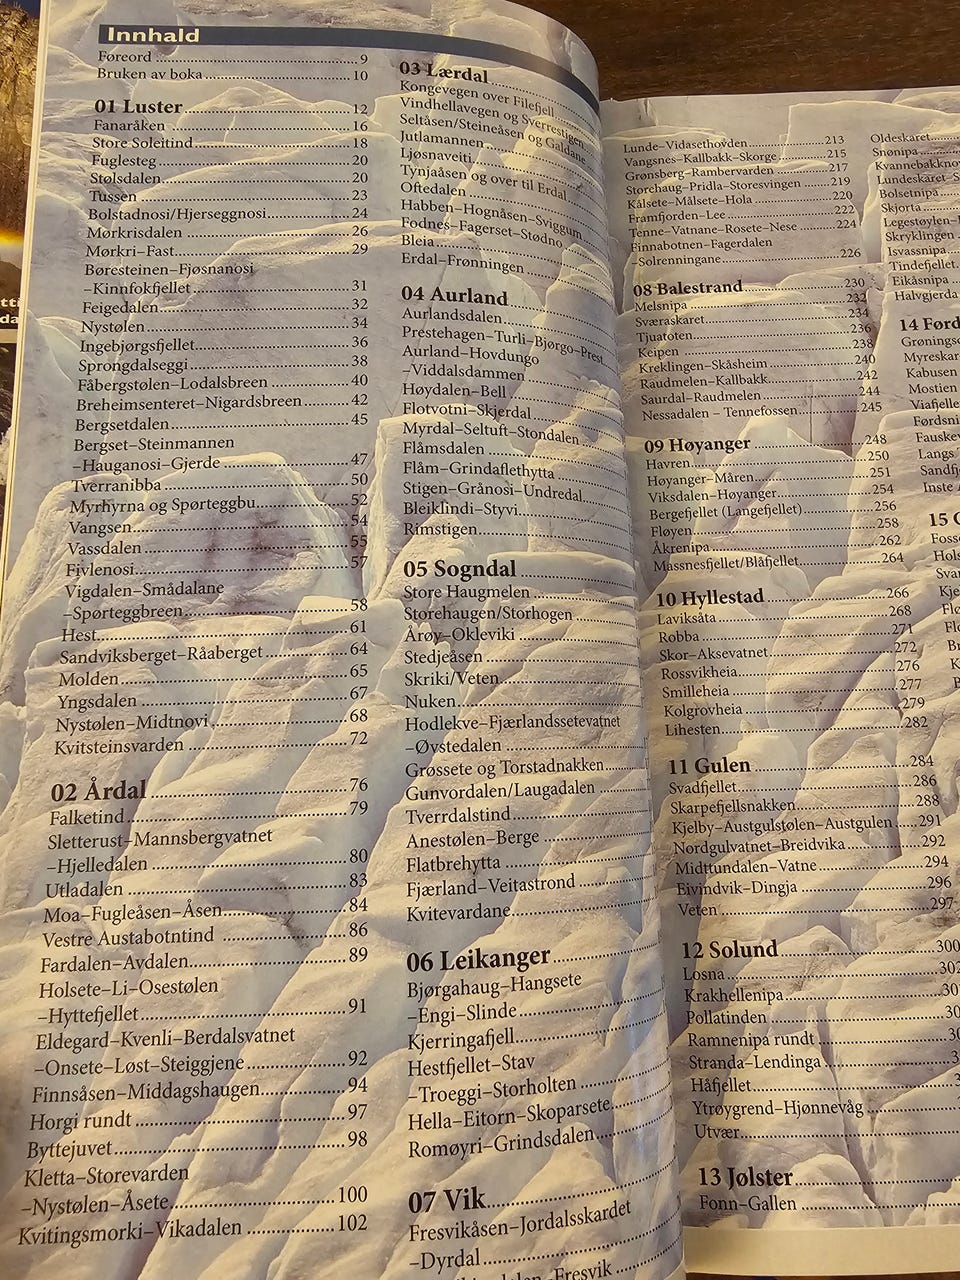 Innhald
Føreord 9
Bruken av boka 10
01 Luster 12
Fanaråken 16
Store Soleitind 18
Fuglesteg 20
Stølsdalen 20
Tussen 23
Bolstadnosi/Hjerseggnosi 24
Mørkrisdalen 26
Mørkri–Fast 29
Børesteinen–Fjøsnanosi
–Kinnfokfjellet 31
Feigedalen 32
Nystølen 34
Ingebjørgsfjellet 36
Sprongdalseggi 38
Fåbergstølen–Lodalsbreen 40
Breheimsenteret–Nigardsbreen 42
Bergsetdalen 45
Bergset–Steinmannen
–Hauganosi–Gjerde 47
Tverranibba 50
Myrhyrna og Spørteggbu 52
Vangsen 54
Vassdalen 55
Fivlenosi 57
Vigdalen–Smådalane
–Spørteggbreen 58
Hest 61
Sandviksberget–Råaberget 64
Molden 65
Yngsdalen 67
Nystølen–Midtnovi 68
Kvitsteinsvarden 72
02 Årdal 76
Falketind 79
Sletterust–Mannsbergvatnet
–Hjelledalen 80
Utladalen 83
Moa–Fugleåsen–Åsen 84
Vestre Austabotntind 86
Fardalen–Avdalen 89
Holsete–Li–Osestølen
–Hyttefjellet 91
Eldegard–Kvenli–Berdalsvatnet
–Onsete–Løst–Steiggjene 92
Finnsåsen–Middagshaugen 94
Horgi rundt 97
Byttejuvet 98
Kletta–Storevarden
–Nystølen–Åsete 100
Kvitingsmorki–Vikadalen 102
03 Lærdal
Kongevegen over Filefjell
Vindhellavegen og Sverrestigen
Seltåsen/Steineåsen og Galdane
Jutlamannen
Ljøsnaveiti
Tynjaåsen og over til Erdal
Oftedalen
Habben–Hognåsen–Sviggum
Fodnes–Fagerset–Stødno
Bleia
Erdal–Frønningen
04 Aurland
Aurlandsdalen
Prestehagen–Turli–Bjørgo–Prest
Aurland–Hovdungo
–Viddalsdammen
Høydalen–Bell
Flotvotni–Skjerdal
Myrdal–Seltuft–Stondalen
Flåmsdalen
Flåm–Grindaflethytta
Stigen–Grånosi–Undredal
Bleiklindi–Styvi
Rimstigen
05 Sogndal
Store Haugmelen
Storehaugen/Storhogen
Årøy–Okleviki
Stedjeåsen
Skriki/Veten
Nuken
Hodlekve–Fjærlandssetevatnet
–Øvstedalen
Grøssete og Torstadnakken
Gunvordalen/Laugadalen
Tverrdalstind
Anestølen–Berge
Flatbrehytta
Fjærland–Veitastrond
Kvitevardane
06 Leikanger
Bjørgahaug–Hangsete
–Engi–Slinde
Kjerringafjell
Hestfjellet–Stav
–Troeggi–Storholten
Hella–Eitorn–Skoparsete
Romøyri–Grindsdalen
07 Vik
Fresvikåsen–Jordalsskardet
–Dyrdal
Fresvik
Lunde–Vidasethovden 213
Vangsnes–Kallbakk–Skorge 215
Grønsberg–Rambervarden 217
Storehaug–Pridla–Storesvingen 219
Kålsete–Målsete–Hola 220
Framfjorden–Lee 222
Tenne–Vatnane–Rosete–Nese 224
Finnabotnen–Fagerdalen
–Solrenningane 226
08 Balestrand 230
Melsnipa 232
Sværaskaret 234
Tjuatoten 236
Keipen 238
Kreklingen–Skåsheim 240
Raudmelen–Kallbakk 242
Saurdal–Raudmelen 244
Nessadalen – Tennefossen 245
09 Høyanger 248
Havren 250
Høyanger–Måren 251
Viksdalen–Høyanger 254
Bergefjellet (Langefjellet) 256
Fløyen 258
Åkrenipa 262
Massnesfjellet/Blåfjellet 264
10 Hyllestad 266
Laviksåta 268
Robba 271
Skor–Aksevatnet 272
Rossvikheia 276
Smilleheia 277
Kolgrovheia 279
Lihesten 282
11 Gulen 284
Svadfjellet 286
Skarpefjellsnakken 288
Kjelby–Austgulstølen–Austgulen 291
Nordgulvatnet–Breidvika 292
Midttundalen–Vatne 294
Eivindvik–Dingja 296
Veten 297
12 Solund 300
Losna 302
Krakhellenipa
Pollatinden
Ramnenipa rundt
Stranda–Lendinga
Håfjellet
Ytrøygrend–Hjønnevåg
Utvær
13 Jølster
Fonn–Gallen
Oldeskaret
Snønipa
Kvannebakknov
Lundeskaret–S
Bolsetnipa
Skjorta
Legestøylen–
Skryklingen
Isvassnipa
Tindefjellet
Eikåsnipa
Halvgjerda
14 Førd
Grønings
Myreskar
Kabusen
Mostien
Viafjelle
Førdsni
Fauskev
Langs
Sandfj
Inste
15
Foss
Hols
Svar
Kje
Flø